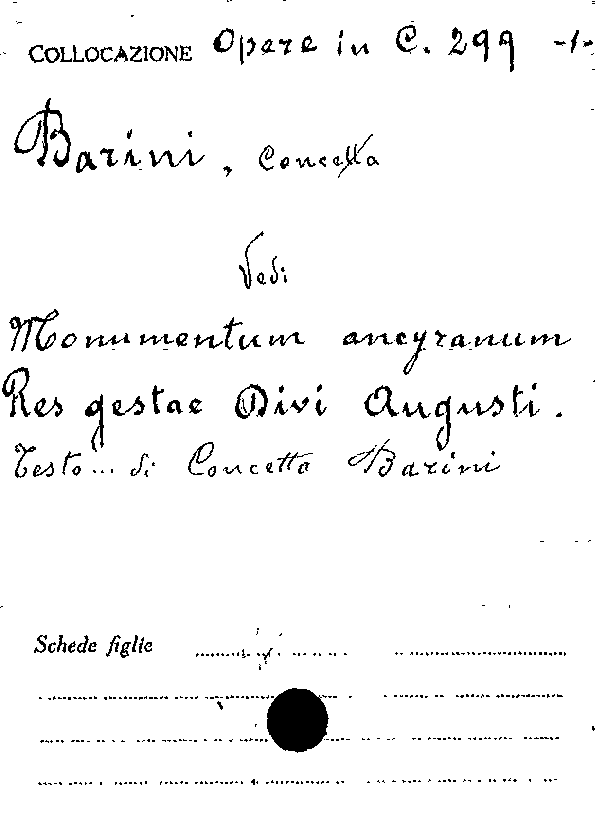 COLLOCAZIONE Opere in C. 299 -1-
Barini, Concetta
Vedi
Monumentum ancyranum
Res gestae Divi Augusti.
Testo... di Concetta Barini
Schede figlie